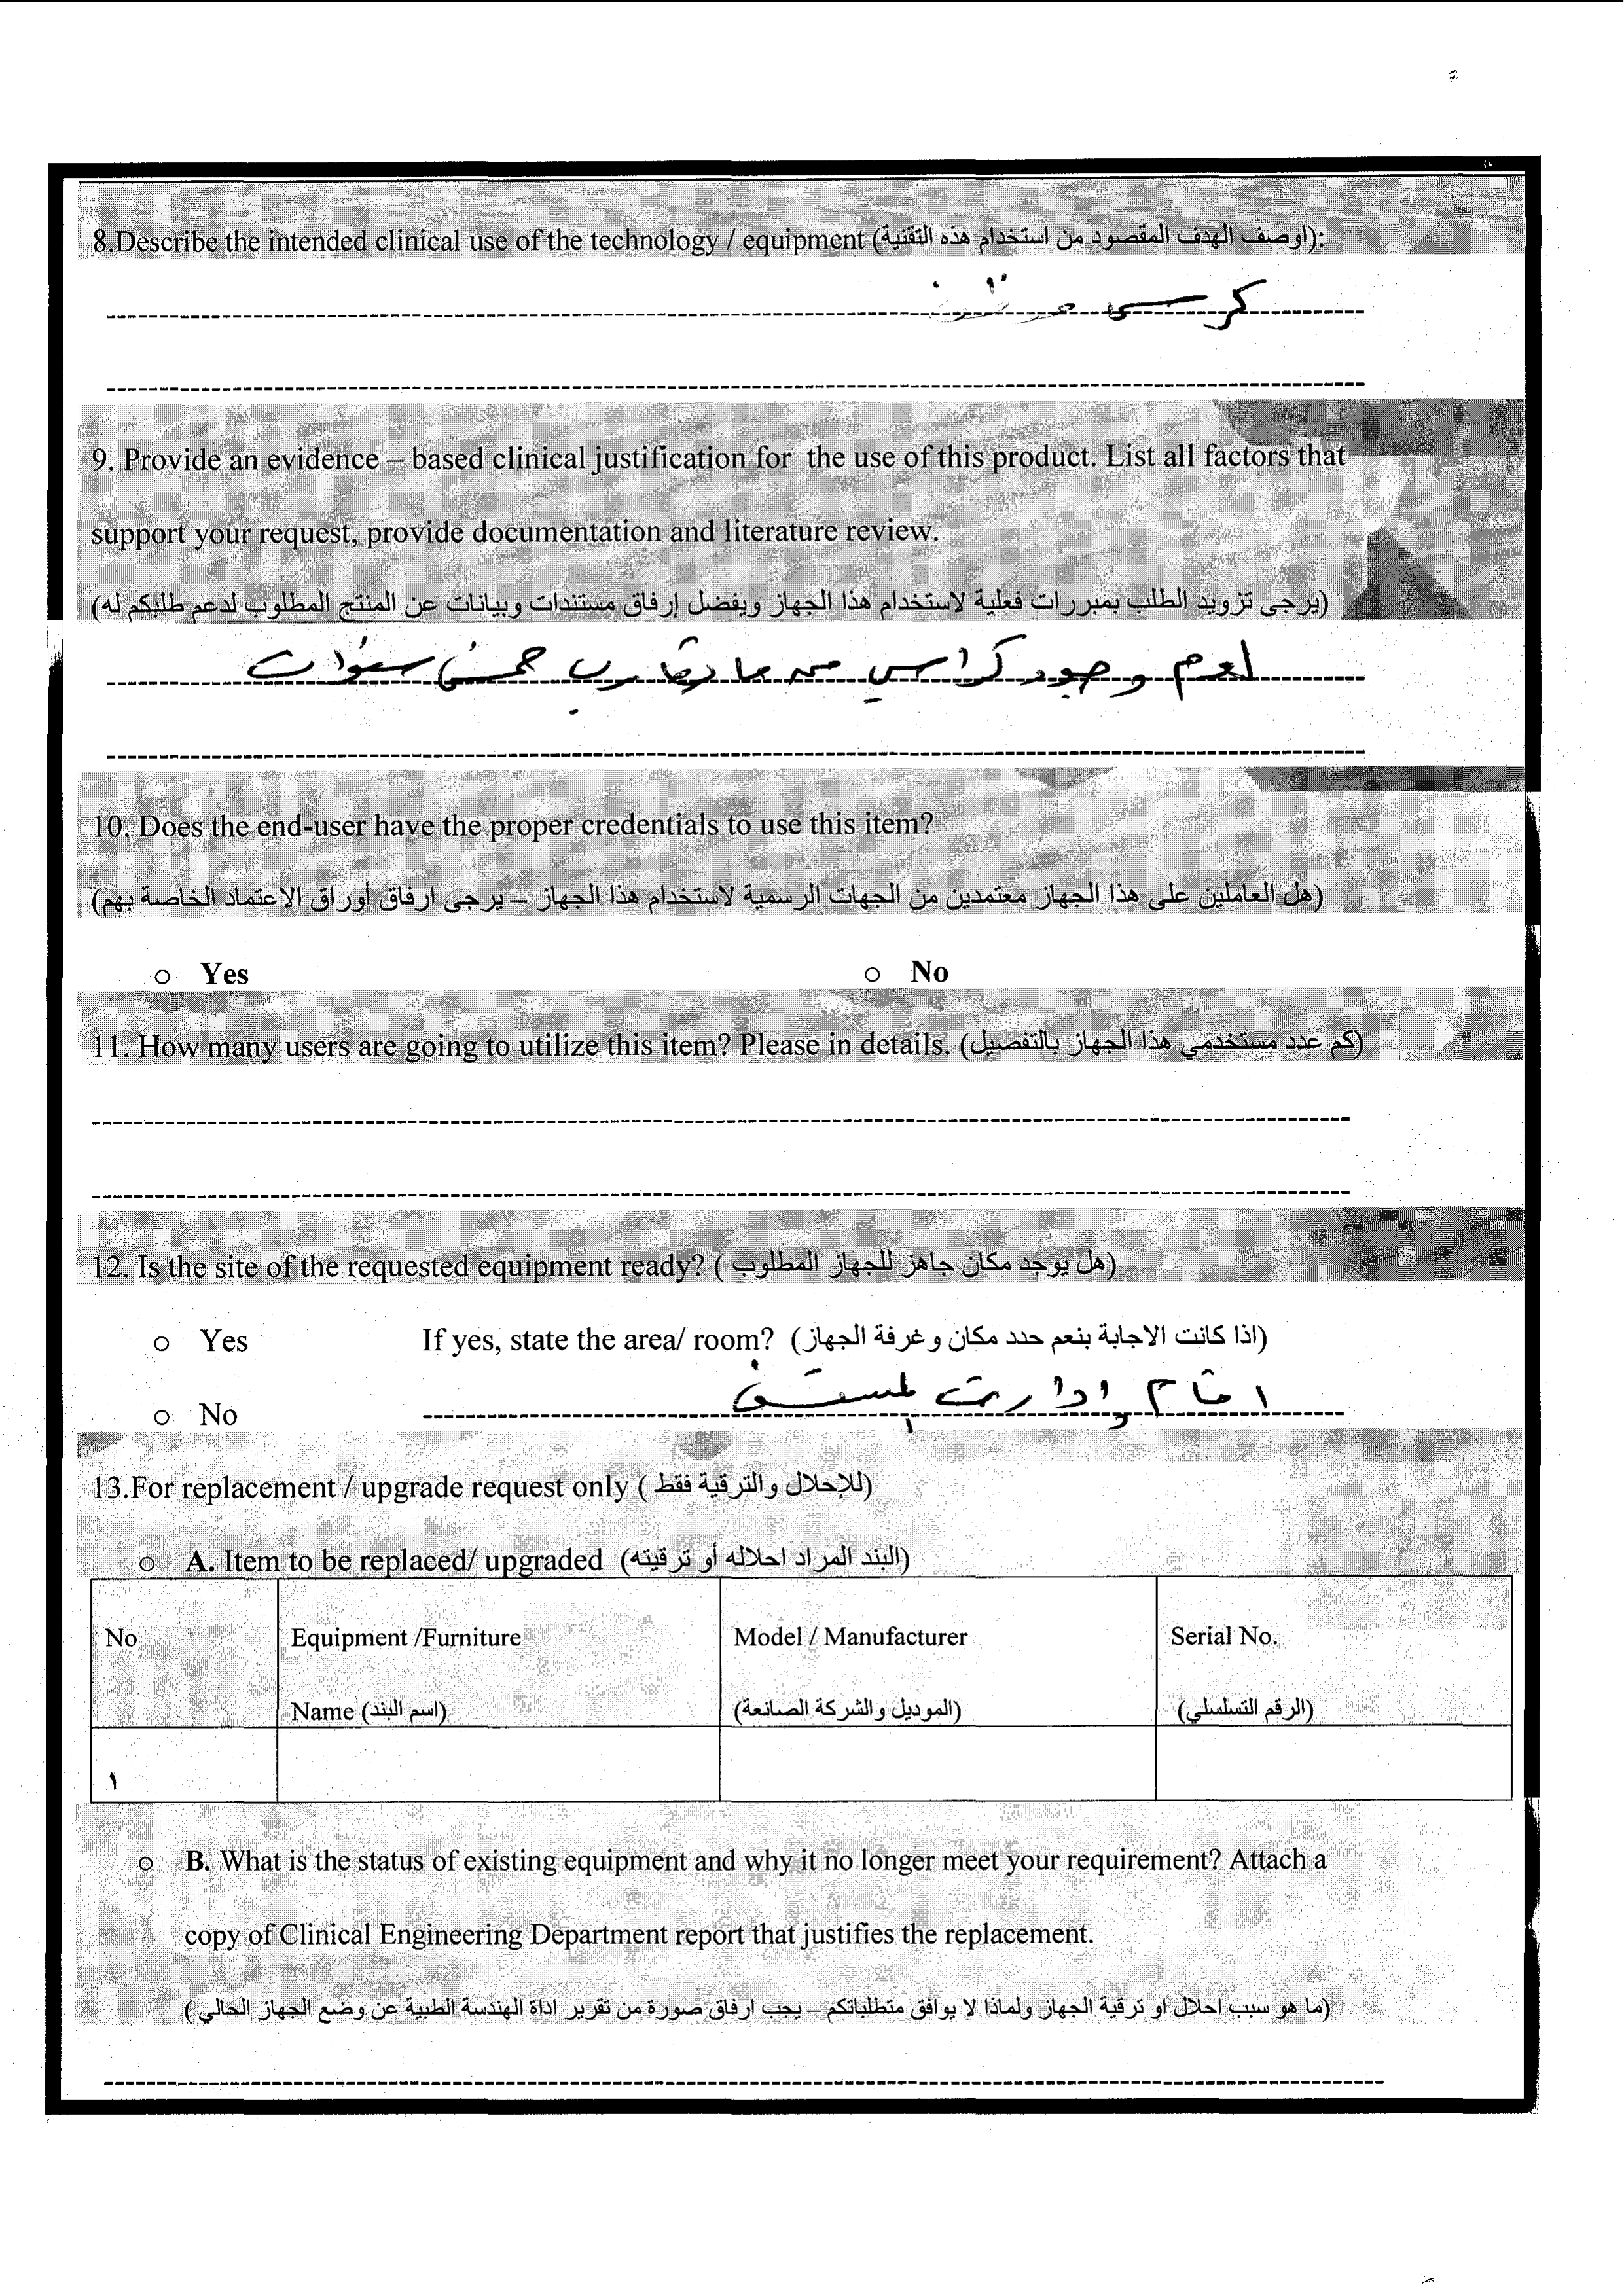 8.Describe the intended clinical use of the technology / equipment (اوصف الهدف المقصود من استخدام هذه التقنية):
كرسي
9. Provide an evidence – based clinical justification for the use of this product. List all factors that
support your request, provide documentation and literature review.
(يرجى تزويد الطلب بمبررات فعلية لاستخدام هذا الجهاز ويفضل إرفاق مستندات وبيانات عن المنتج المطلوب لدعم طلبكم له)
لعدم وجود كراسي من ما يقارب خمس سنوات
10. Does the end-user have the proper credentials to use this item?
(هل العاملين على هذا الجهاز معتمدين من الجهات الرسمية لاستخدام هذا الجهاز – يرجى ارفاق أوراق الاعتماد الخاصة بهم)
○ Yes ○ No
11. How many users are going to utilize this item? Please in details. (كم عدد مستخدمي هذا الجهاز بالتفصيل)
12. Is the site of the requested equipment ready? (هل يوجد مكان جاهز للجهاز المطلوب)
○ Yes If yes, state the area/ room? (اذا كانت الاجابة بنعم حدد مكان وغرفة الجهاز)
○ No
13.For replacement / upgrade request only (للإحلال والترقية فقط)
○ A. Item to be replaced/ upgraded (البند المراد احلاله أو ترقيته)
No Equipment /Furniture Model / Manufacturer Serial No.
Name (اسم البند) (الموديل والشركة الصانعة) (الرقم التسلسلي)
١
○ B. What is the status of existing equipment and why it no longer meet your requirement? Attach a
copy of Clinical Engineering Department report that justifies the replacement.
(ما هو سبب احلال او ترقية الجهاز ولماذا لا يوافق متطلباتكم – يجب ارفاق صورة من تقرير اداة الهندسة الطبية عن وضع الجهاز الحالي)